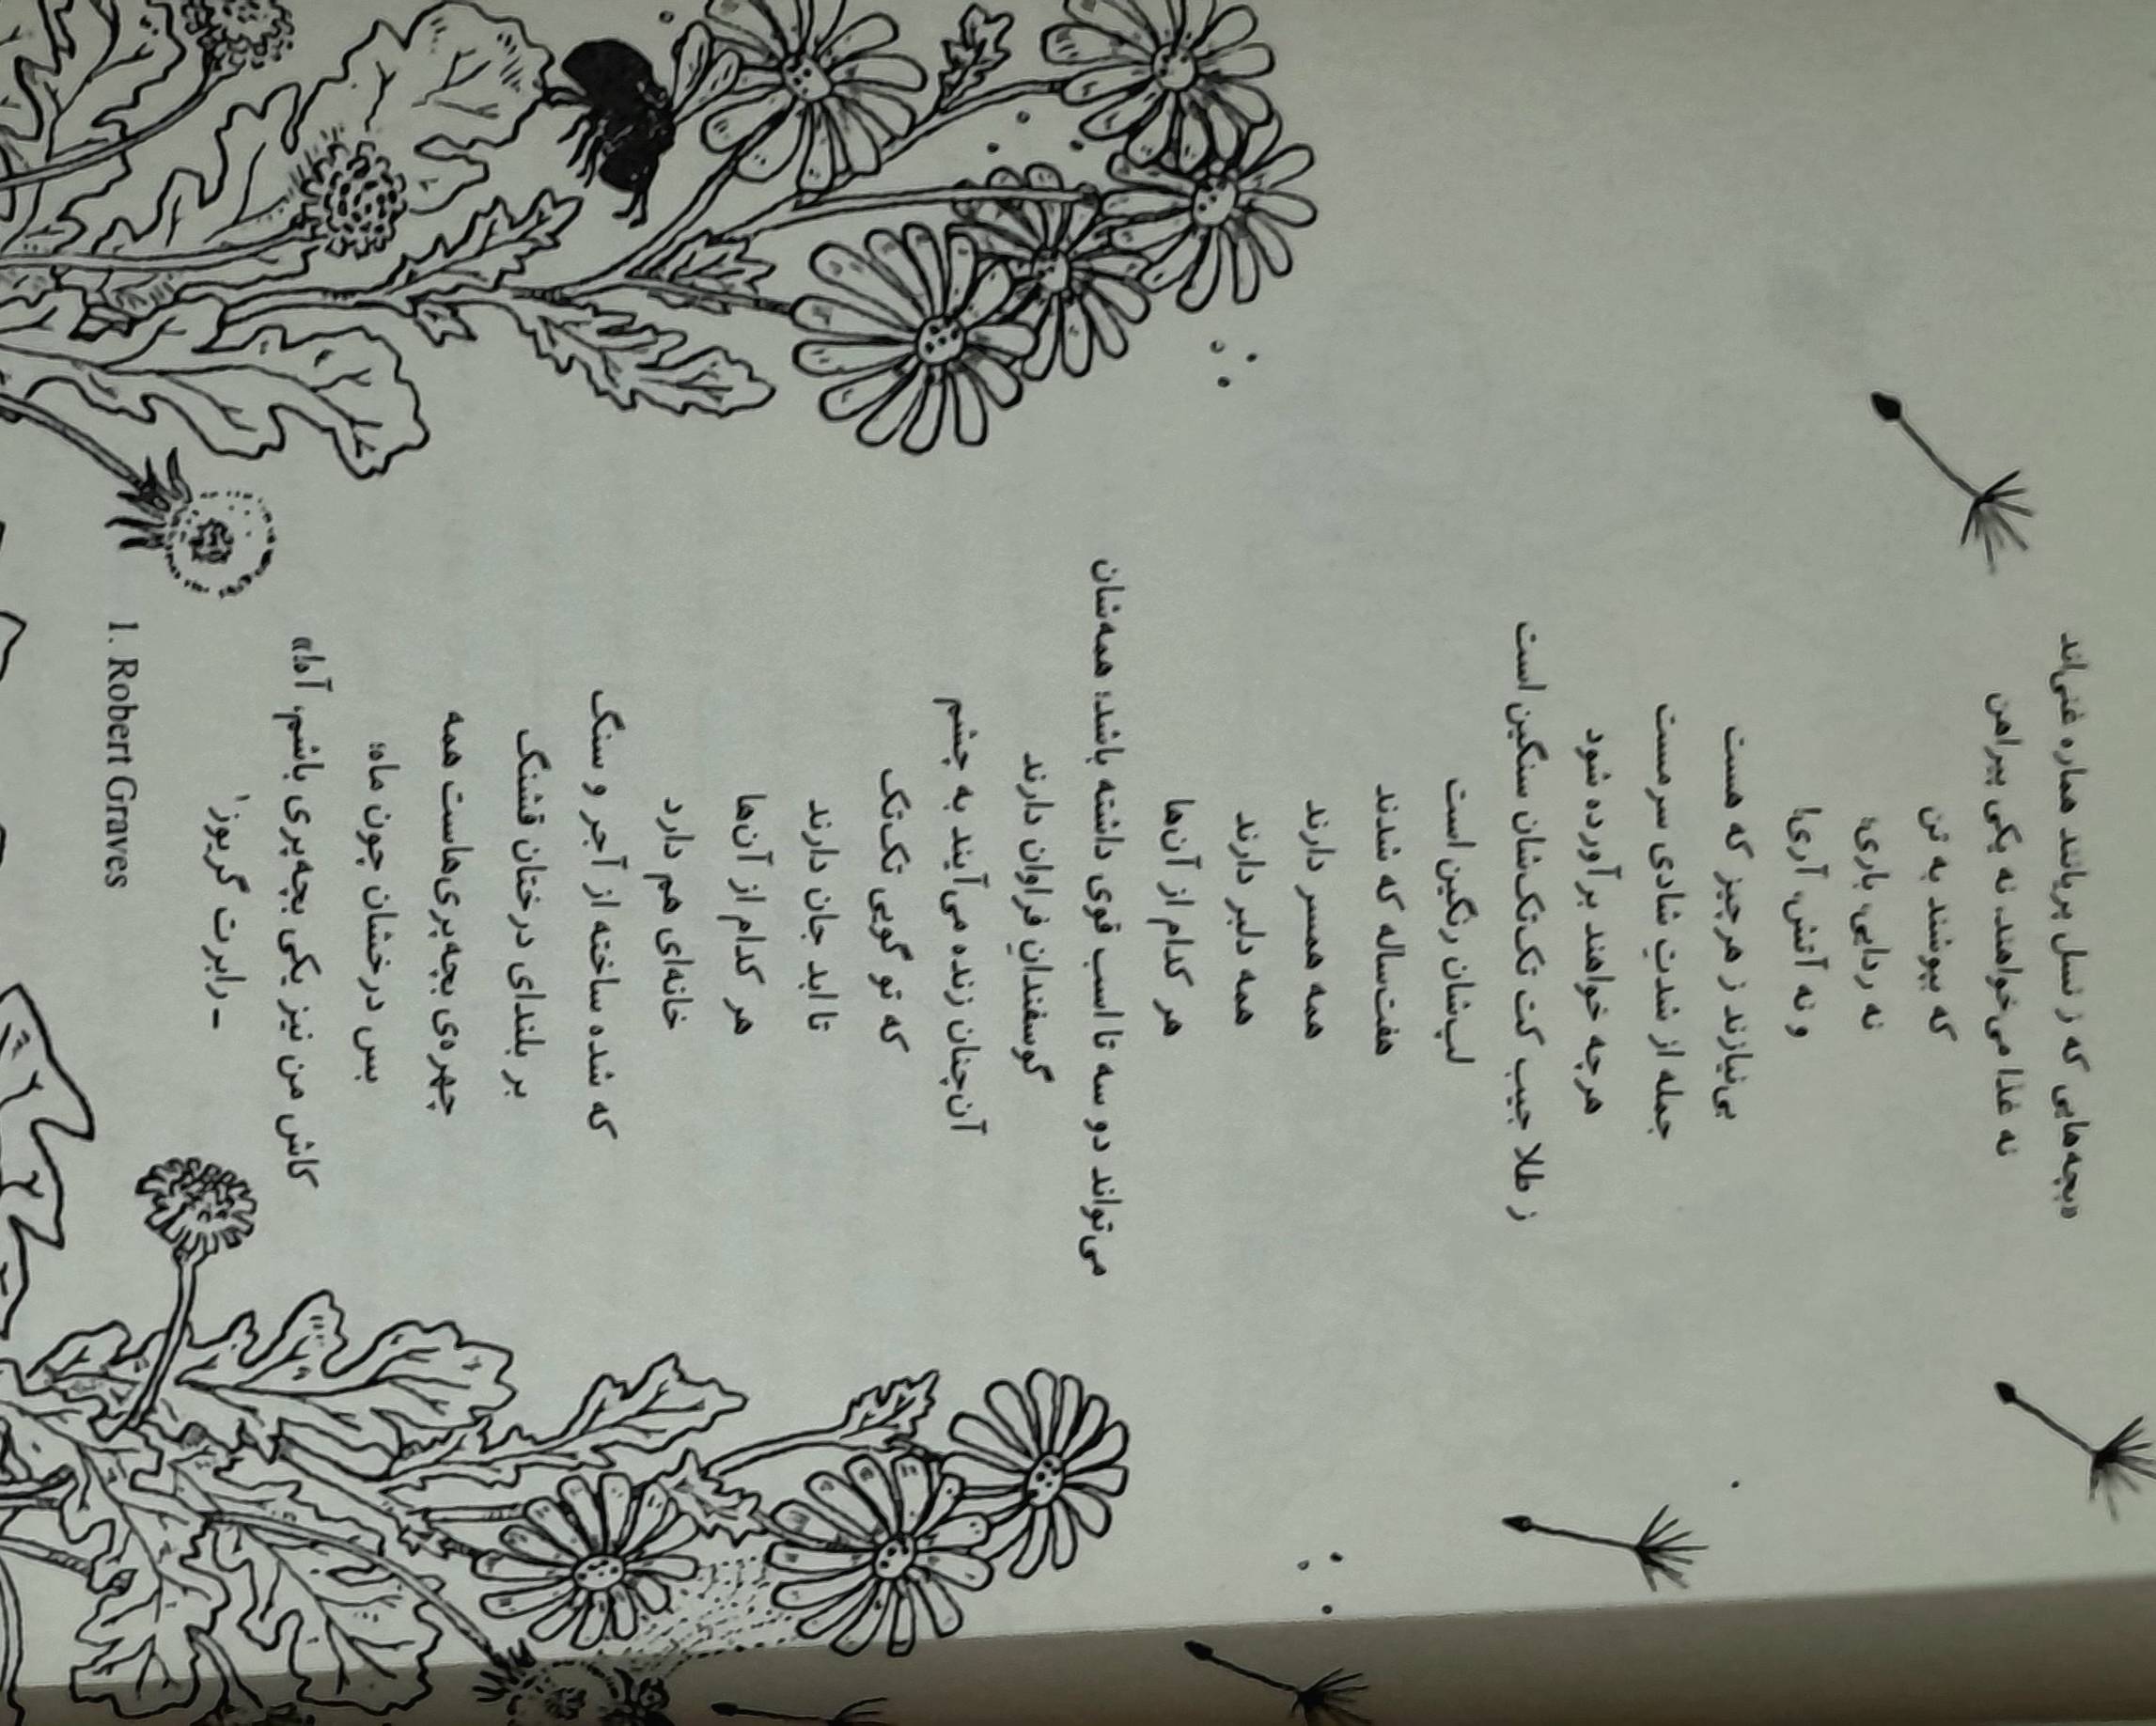 «بچه‌هایی که ز نسل پریانند هماره غنی‌اند
نه غذا می‌خواهند، نه یکی پیراهن
که بپوشند به تن
نه ردایی، باری،
و نه آتش، آری!
بی‌نیازند ز هرچیز که هست
جمله از شدتِ شادی سرمست
هرچه خواهند برآورده شود
ز طلا جیب کت تک‌تک‌شان سنگین است
لپ‌شان رنگین است
هفت‌ساله که شدند
همه همسر دارند
همه دلبر دارند
هر کدام از آن‌ها
می‌تواند دو سه تا اسب قوی داشته باشد؛ همه‌شان
گوسفندانِ فراوان دارند
آن‌چنان زنده می‌آیند به چشم
که تو گویی تک‌تک
تا ابد جان دارند
هر کدام از آن‌ها
خانه‌ای هم دارد
که شده ساخته از آجر و سنگ
بر بلندای درختان قشنگ
چهره‌ی بچه‌پری‌هاست همه
بس درخشان چون ماه؛
کاش من نیز یکی بچه‌پری باشم، آه!»
- رابرت گریوز¹
1. Robert Graves